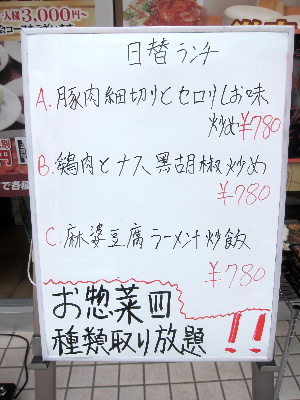 人様3,000円~
日替ランチ
A. 豚肉細切りとセロリしお味
炒め ¥780
B. 鶏肉とナス黒胡椒炒め
¥780
C. 麻婆豆腐ラーメン+炒飯
¥780
お惣菜四
種類取り放題!!